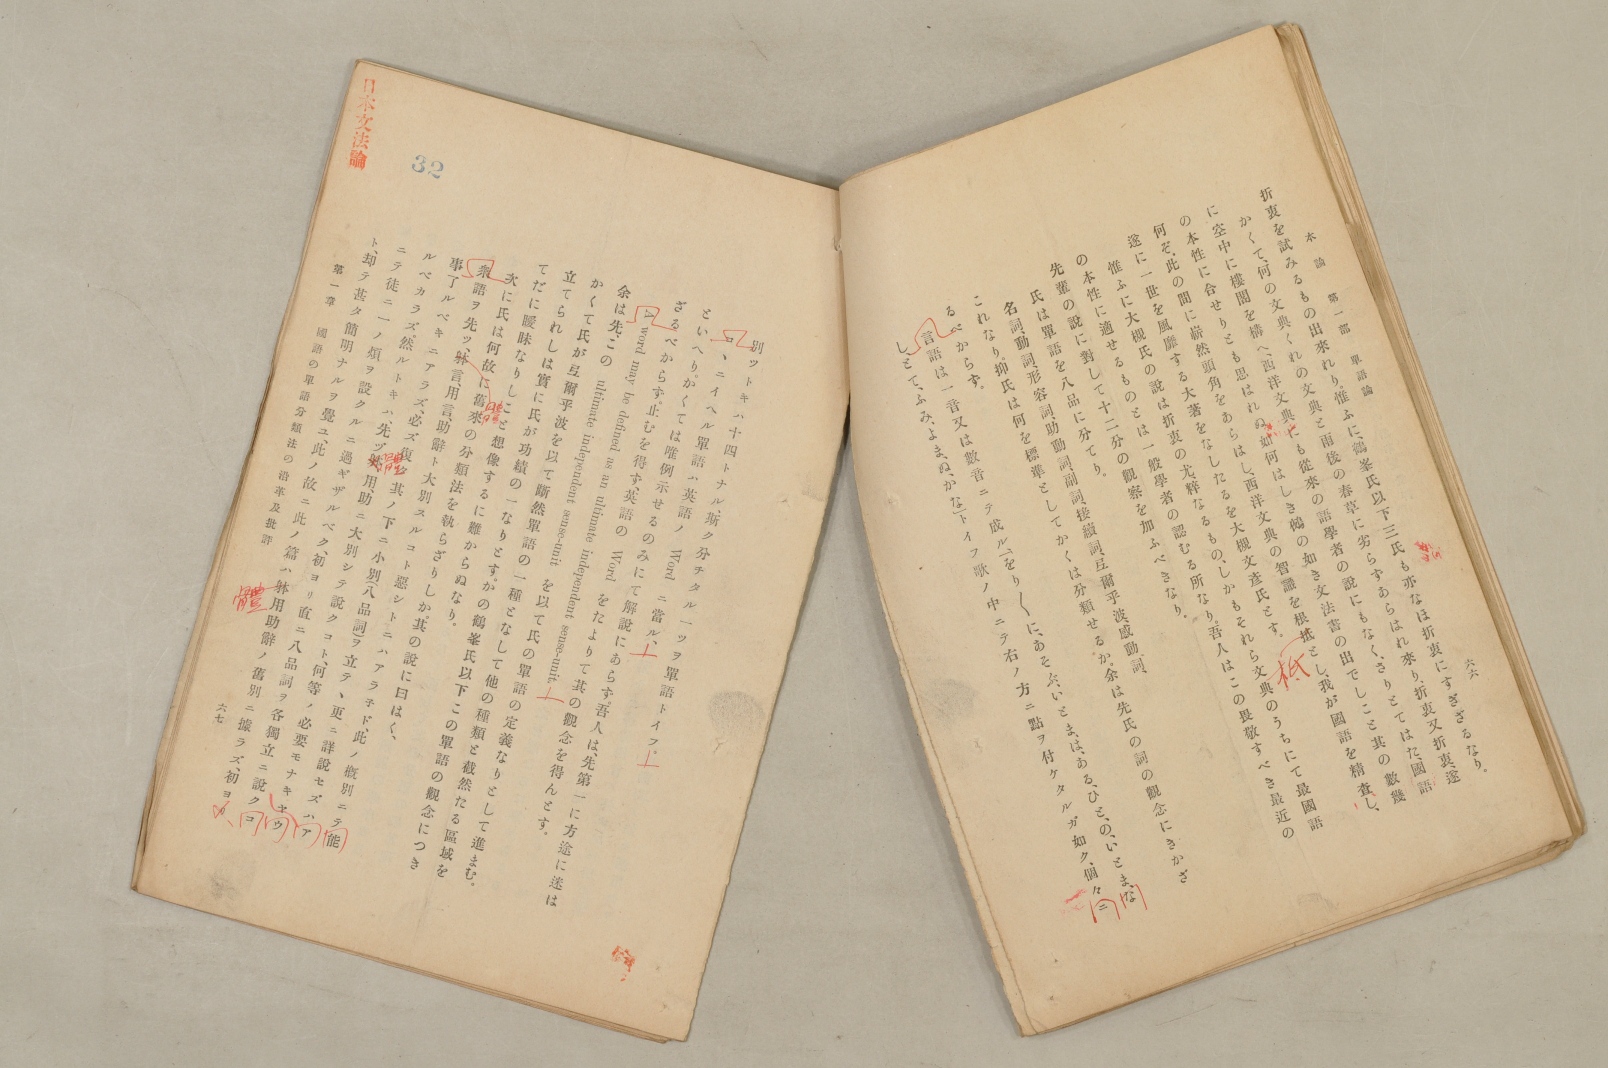 本論　第一部　單語論
六六
折衷を試みるもの出來れり。惟ふに、鶴峯氏以下三氏も亦なほ折衷にすぎざるなり。
かくて、何の文典くれの文典と雨後の春草に劣らずあらはれ來り、折衷又折衷、遂
に空中に樓閣を構へ、西洋文典にも從來の語學者の説にもなく、さりとてはた、國語
の本性に合せりとも思はれぬ如何はしき鵺の如き文法書の出でしこと其の數幾
何ぞ。此の間に嶄然頭角をあらはし、西洋文典の智識を根抵とし、我が國語を精査し、
遂に一世を風靡する大著をなしたるを大槻文彦氏とす。
惟ふに大槻氏の説は折衷の尤粹なるもの、しかもそれら文典のうちにて最國語
の本性に適せるものとは一般學者の認むる所なり。吾人はこの畏敬すべき最近の
先輩の説に對して十二分の觀察を加ふべきなり。
氏は單語を八品に分てり。
名詞、動詞、形容詞、助動詞、副詞、接續詞、弖爾乎波、感動詞、
これなり。抑氏は何を標準としてかくは分類せるか。余は先氏の詞の觀念にきかざ
るべからず。
言語は一音又は數音ニテ成ル、「をり〳〵に、あそぶ、いとま、は、ある、ひと、の、いとま、な
し、とて、ふみ、よま、ぬ、かな」トイフ歌ノ中ニテ右ノ方ニ點ヲ付ケタルガ如ク、個々ニ
日本文法論
32
別ツトキハ十四トナル、斯ク分チタル一ツヲ單語トイフ。
コヽニイヘル單語ハ英語ノ Word ニ當ル、
といへり。かくては唯例示せるのみにて解說にあらず。吾人は先第一に方途に迷は
ざるべからず。止むを得ず、英語の Word をたよりて其の觀念を得んとす。
A word may be defined as an ultimate independent sense-unit.
余は先、この ultimate independent sense-unit を以て氏の單語の定義なりとして進まむ。
かくて氏が弖爾乎波を以て斷然單語の一種となして他の種類と截然たる區域を
立てられしは實に氏が功績の一なりとす。かの鶴峯氏以下この單語の觀念につき
てだに曖昧なりしこと想像するに難からぬなり。
次に氏は何故に舊來の分類法を執らざりしか。其の說に曰はく、
衆語ヲ先ツ、躰言用言、助辭ト大別スルコト惡シトニハアラネド、此ノ概別ニテ能
事了ルベキニアラズ、必ズ復タ其ノ下ニ小別(八品詞)ヲ立テヽ更ニ詳說セズハア
ルベカラズ。然ルトキハ、先ヅ躰用助ニ大別シテ說クコト、何等ノ必要モナキヤウ
ニテ徒ニ一ノ煩ヲ設クルニ過ギザルベク、初ヨリ直ニ八品詞ヲ各獨立ニ說クコ
ト、却テ甚タ簡明ナルヲ覺ユ、此ノ故ニ此ノ篇ハ躰用助辭ノ舊別ニ據ラズ、初ヨリ
第一章　國語の單語分類法の沿革及批評
六七
柢
體
體
體